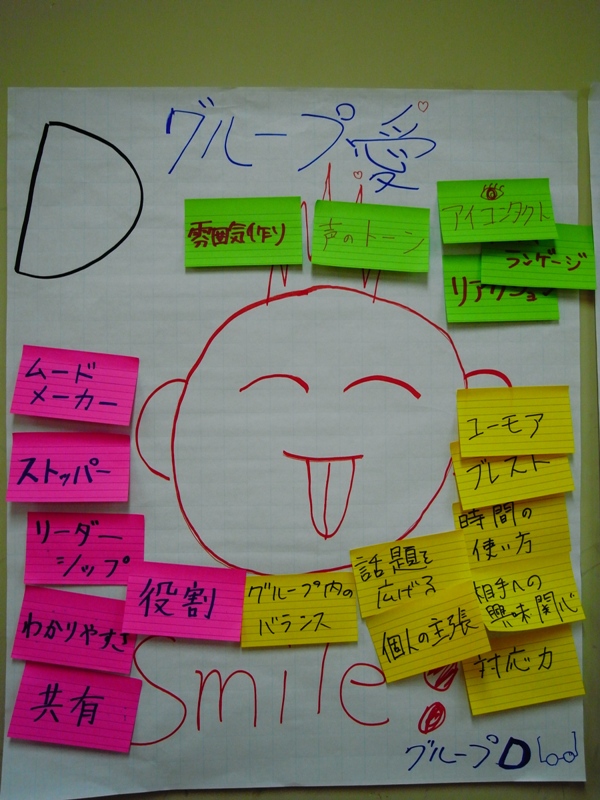 D
グループ愛
雰囲気作り
声のトーン
アイコンタクト
ランゲージ
リアクション
ムード
メーカー
ストッパー
リーダー
シップ
わかりやすさ
共有
役割
グループ内の
バランス
話題を
広げる
個人の主張
ユーモア
ブレスト
時間の
使い方
相手への
興味関心
対応力
Smile!
グループD